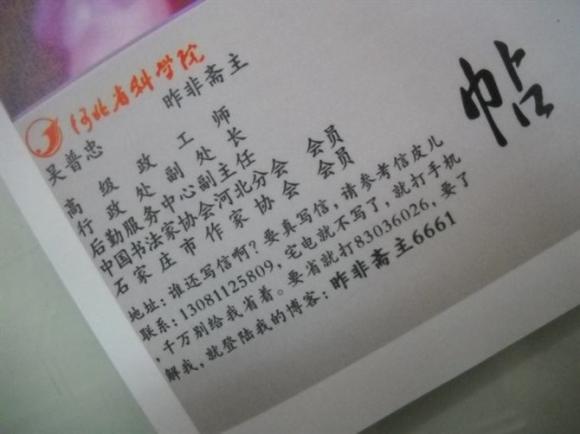 河北省科学院
昨非斋主
帖
吴普忠
高级政工师
行政处副处长
后勤服务中心副主任
中国书法家协会河北分会 会员
石家庄市作家协会 会员
地址:谁还写信啊?要真写信,请参考信皮儿
联系:13081125809,宅电就不写了,就打手机
,千万别给我省着。要省就打83036026,要了
解我,就登陆我的博客:昨非斋主6661